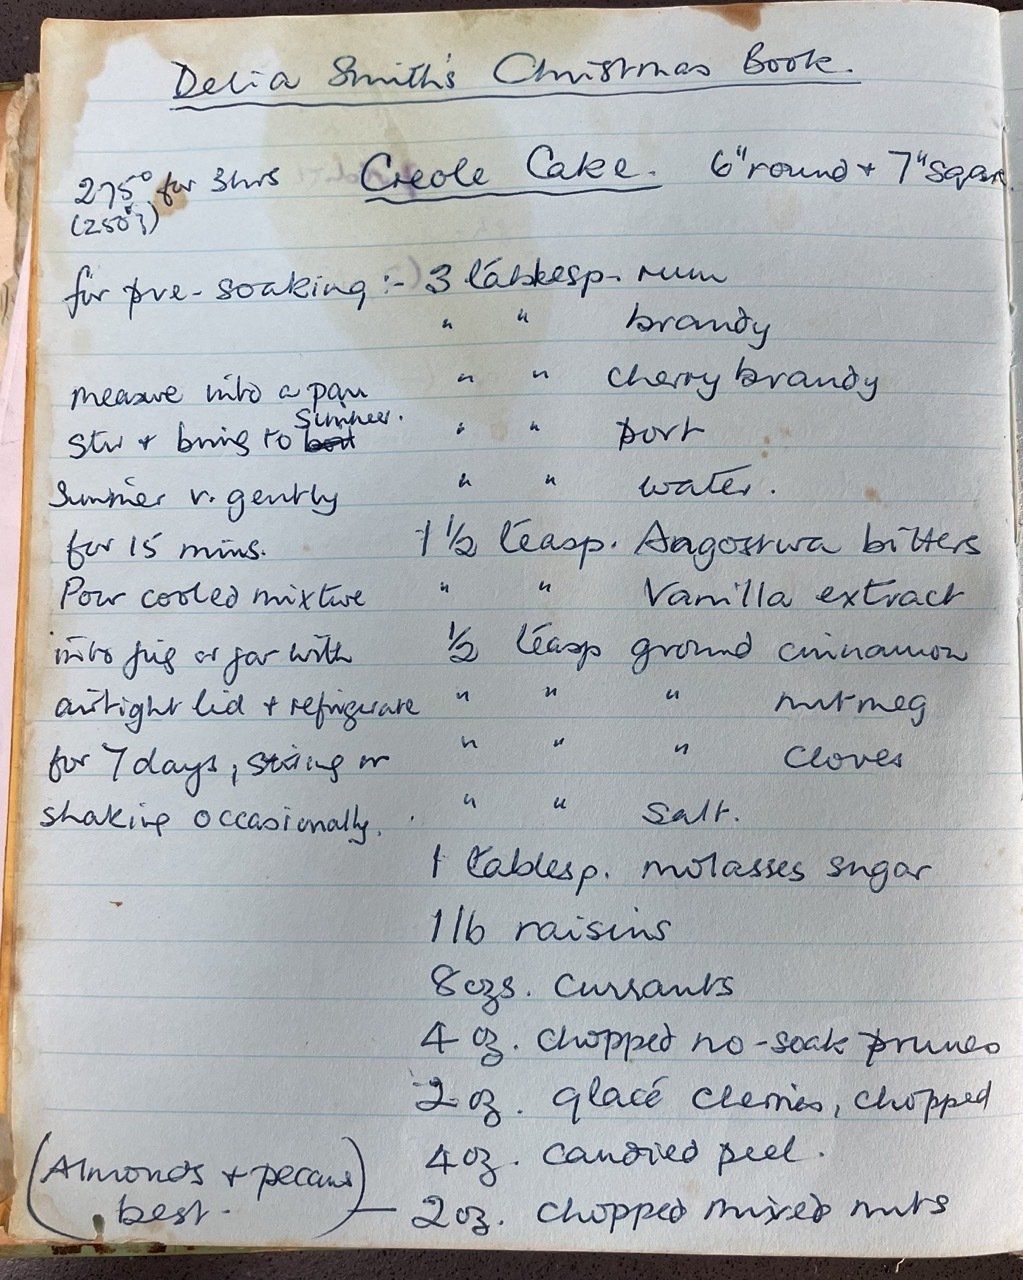 Delia Smith's Christmas Book.
275° for 3hrs Creole Cake. 6" round + 7" sqare
(250°?)
for pre-soaking :- 3 tablesp. rum
" " brandy
measure into a pan " " cherry brandy
simmer.
stir + bring to boil " " port
Simmer v. gently " " water.
for 15 mins. 1 1/2 teasp. Angostura bitters
Pour cooled mixture " " Vanilla extract
into jug or jar with 1/2 teasp ground cinnamon
airtight lid + refrigerate " " " nutmeg
for 7 days, stiring or " " " Cloves
shaking occasionally. " " Salt.
1 tablesp. molasses sugar
1 lb raisins
8 ozs. currants
4 oz. chopped no-soak prunes
2 oz. glacé cherries, chopped
4 oz. candied peel.
(Almonds + pecans best.) — 2 oz. chopped mixed nuts